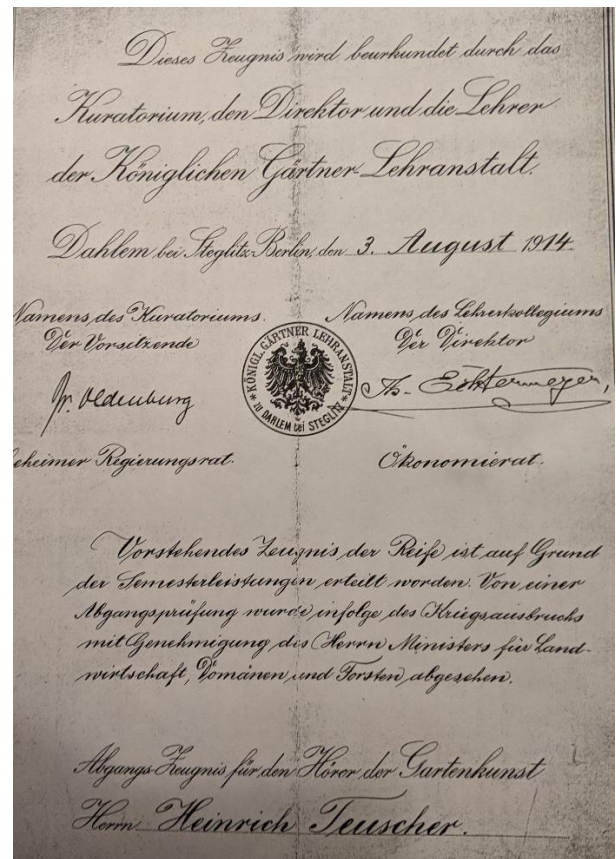 Dieses Zeugnis wird beurkundet durch das
Kuratorium, den Direktor und die Lehrer
der Königlichen Gärtner-Lehranstalt.
Dahlem bei Steglitz-Berlin, den 3. August 1914
Namens des Kuratoriums.
Der Vorsitzende
Dr. Oldenburg
Geheimer Regierungsrat.
KÖNIGL. GÄRTNER LEHRANSTALT
* ZU DAHLEM bei STEGLITZ *
Namens des Lehrerkollegiums
Der Direktor
Th. Echtermeyer,
Ökonomierat.
Vorstehendes Zeugnis der Reife ist auf Grund
der Semesterleistungen erteilt worden. Von einer
Abgangsprüfung wurde infolge des Kriegsausbruchs
mit Genehmigung des Herrn Ministers für Land-
wirtschaft, Domänen und Forsten abgesehen.
Abgangs-Zeugnis für den Hörer der Gartenkunst
Herrn Heinrich Teuscher.